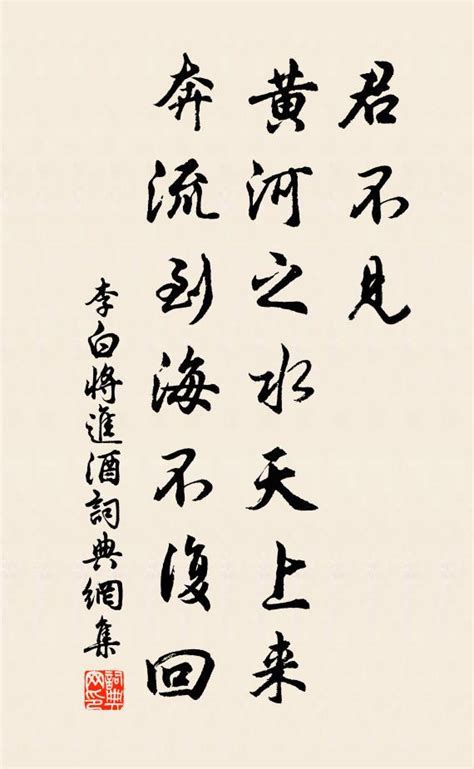 君不见
黄河之水天上来
奔流到海不復回
李白將進酒詞典網集
詞典网印